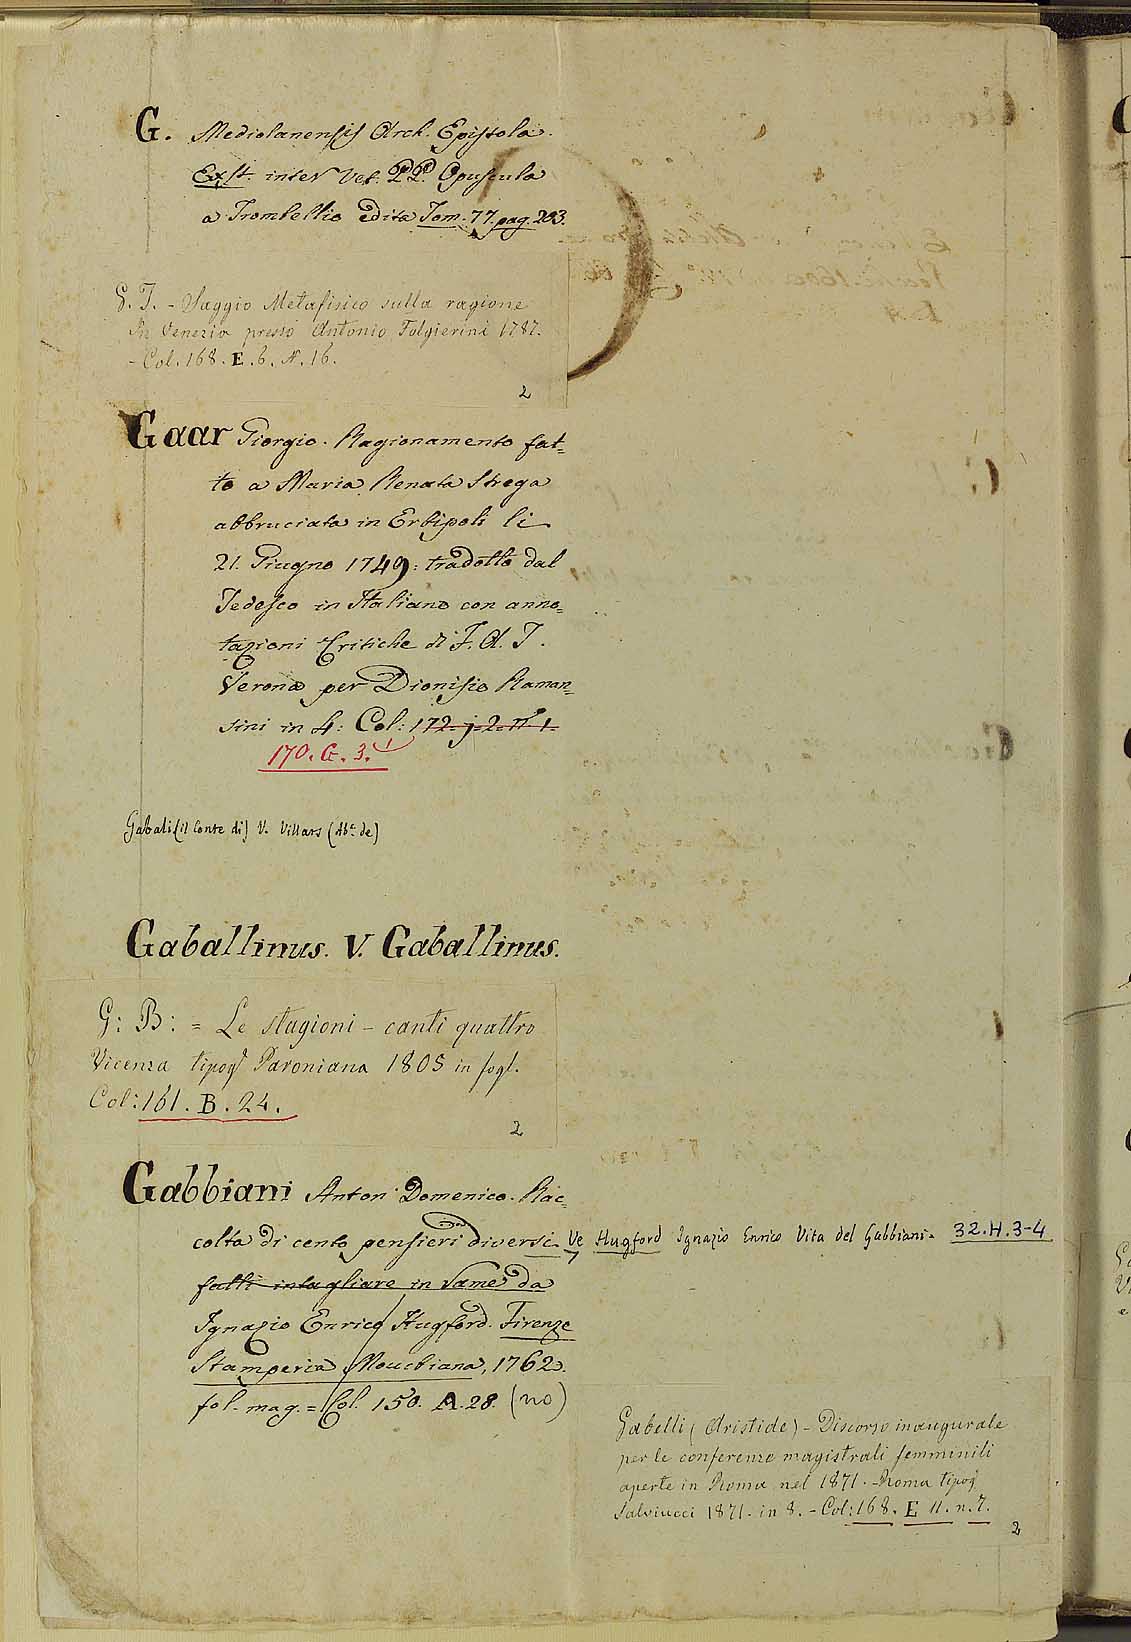 G. Mediolanensis Arch. Epistola.
Exst. inter Vet. PP. Opuscula
a Trombellio edita Tom. 77. pag. 203.
G. T. - Saggio Metafisico sulla ragione
In Venezia presso Antonio Folgierini 1787.
- Col. 168. E. 6. N. 16.
2
Gaar Giorgio. Ragionamento fat=
to a Maria Renata Strega
abbruciata in Erbipoli li
21. Giugno 1749: tradotto dal
Tedesco in Italiano con anno=
tazioni Critiche di F. A. T.
Verona per Dionisio Raman=
zini in 4: Col: 172. j. 2. n° 1.
170. G. 3. 1
Gabali (il Conte di) V. Villars (Ab.e de)
Gaballinus. V. Gaballinus.
G: B: = Le stagioni - canti quattro
Vicenza tipog. Paroniana 1805 in fogl.
Col: 161. B. 24.
2
Gabbiani Anton Domenico. Rac=
colta di cento pensieri diversi. Ve Hugford Ignazio Enrico Vita del Gabbiani. 32.H.3-4
fatti intagliare in rame da
Ignazio Enrico Hugford. Firenze
Stamperia Mouckiana, 1762.
fol. mag. = Col. 150. A. 28. (no)
Gabelli (Aristide) - Discorso inaugurale
per le conferenze magistrali femminili
aperte in Roma nel 1871. - Roma tipog
Salviucci 1871. in 8. - Col: 168. E 11. n. 7.
2